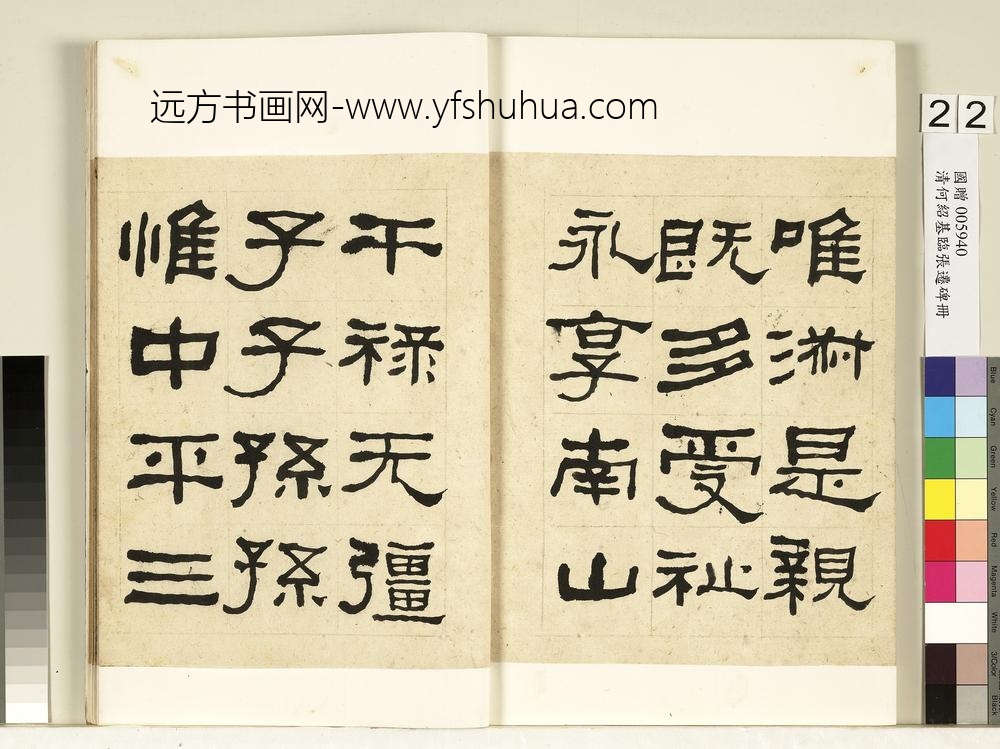 远方书画网-www.yfshuhua.com
唯淋是親
既多受祉
永享南山
干禄无疆
子子孫孫
惟中平三
22
國贈 005940
清何紹基臨張遷碑冊
Blue
Cyan
Green
Yellow
Red
Magenta
White
3/Color
Black